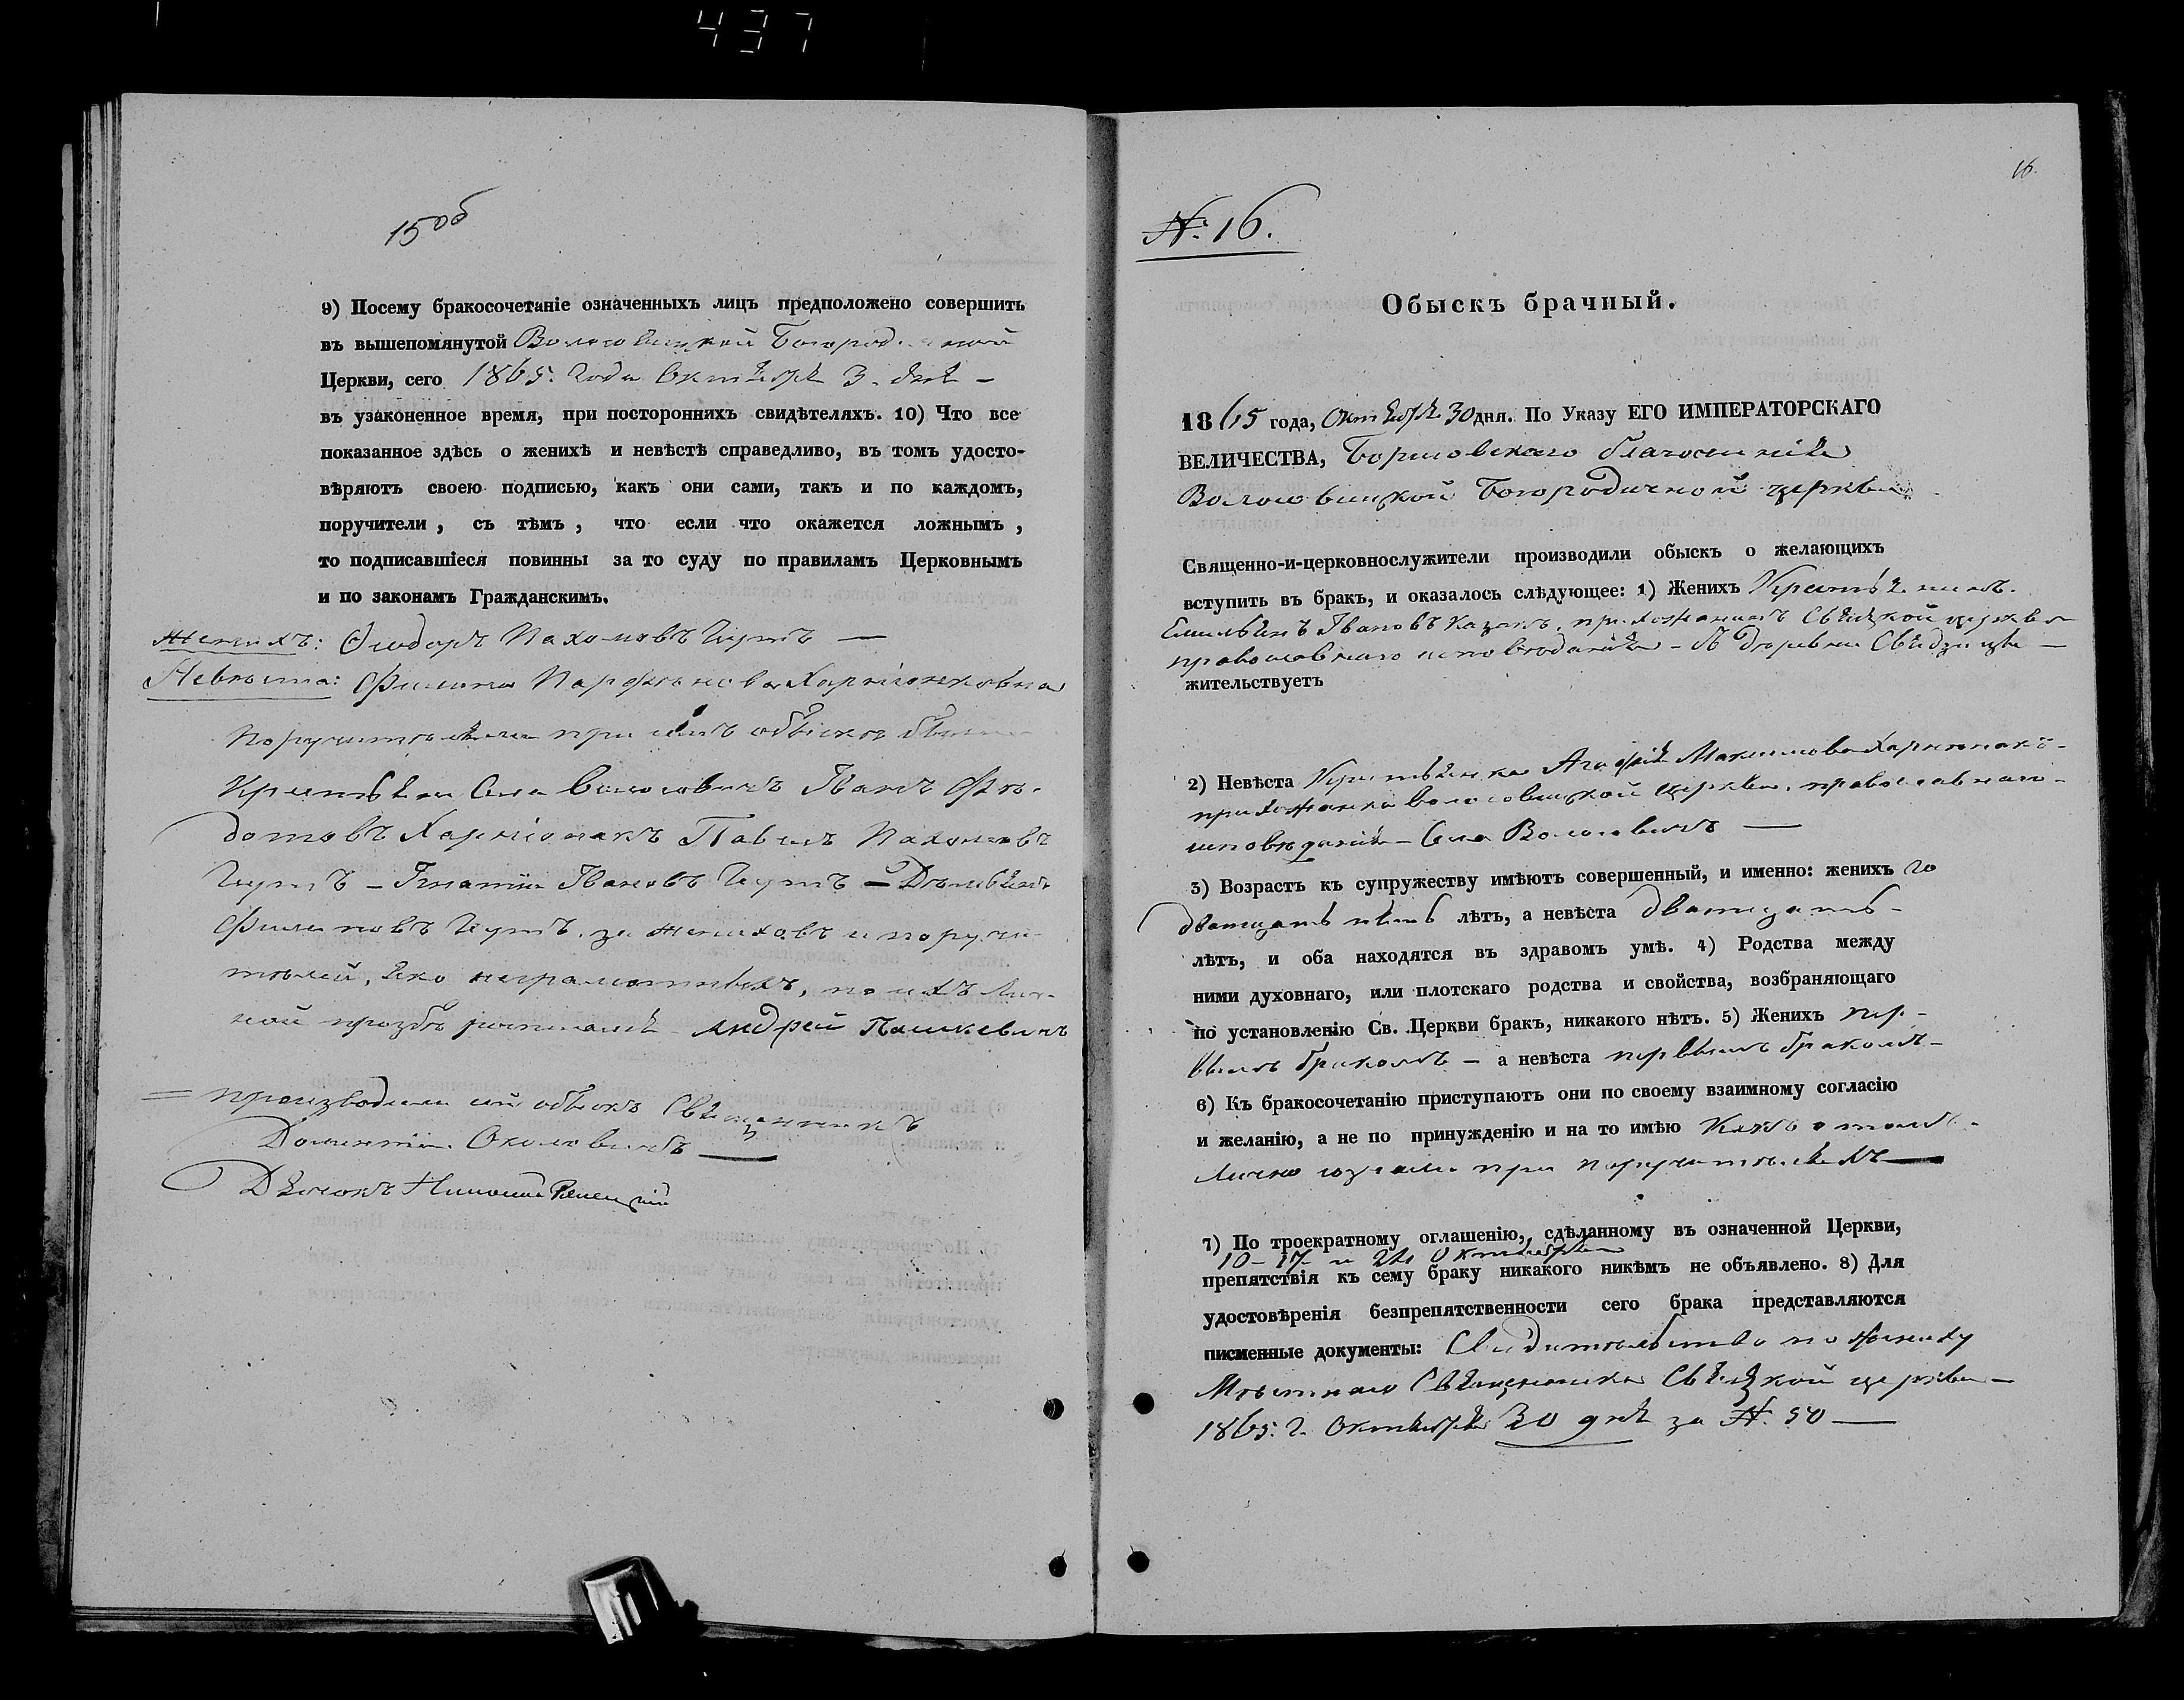 437
15об
9) Посему бракосочетаніе означенныхъ лицъ предположено совершить
въ вышепомянутой
Церкви, сего 1865. года Октября 3. дня -
въ узаконенное время, при постороннихъ свидѣтеляхъ. 10) Что все
показанное здѣсь о женихѣ и невѣстѣ справедливо, въ томъ удосто-
вѣряютъ своею подписью, какъ они сами, такъ и по каждомъ,
поручители, съ тѣмъ, что если что окажется ложнымъ,
то подписавшіеся повинны за то суду по правиламъ Церковнымъ
и по законамъ Гражданскимъ.
Женихъ: Ѳеодоръ Пахомовъ —
Невѣста:
Поручителями при семъ обыскѣ были
Крестьяне Села Волосовичъ Иванъ Ѳедо-
товъ Харитонакъ Павелъ Пахомовъ
Игнатій Ивановъ
за жениховъ и поручи-
телей, яко неграмотныхъ, по ихъ лич-
ной прозбѣ росписался Андрей Пашкевичъ
= производили сей обыскъ Священникъ
Околовичъ
Дьячокъ
16.
№. 16.
Обыскъ брачный.
1865 года, Октября 30 дня. По Указу ЕГО ИМПЕРАТОРСКАГО
ВЕЛИЧЕСТВА, Борисовскаго благочинія
Волосовицкой Богородичной церкви
Священно-и-церковнослужители производили обыскъ о желающихъ
вступить въ бракъ, и оказалось слѣдующее: 1) Женихъ Крестьянинъ.
Емильянъ Ивановъ Казакъ. прихожанинъ Свяцкой церкви
православнаго исповѣданія - Въ деревни —
жительствуетъ
2) Невѣста Крестьянка Агафія Максимова Харитонакъ-
прихожанка Волосовицкой церкви. православнаго-
исповѣданія - Села Волосовичъ —
3) Возрастъ къ супружеству имѣютъ совершенный, и именно: женихъ
двацать пять лѣтъ, а невѣста двацать-
лѣтъ, и оба находятся въ здравомъ умѣ. 4) Родства между
ними духовнаго, или плотскаго родства и свойства, возбраняющаго
по установленію Св. Церкви бракъ, никакого нѣтъ. 5) Женихъ пер-
вымъ бракомъ - а невѣста первымъ бракомъ-
6) Къ бракосочетанію приступаютъ они по своему взаимному согласію
и желанію, а не по принужденію и на то имѣю Какъ о томъ-
Лично при поручителяхъ —
7) По троекратному оглашенію, сдѣланному въ означенной Церкви,
10 - 17 - и 24 Октября
препятствія къ сему браку никакого никѣмъ не объявлено. 8) Для
удостовѣренія безпрепятственности сего брака представляются
писменные документы: Свидѣтельство по жениху
Мѣстнаго Священника Свяцкой церкви -
1865. г. Октября 30 дня за №. 50 —